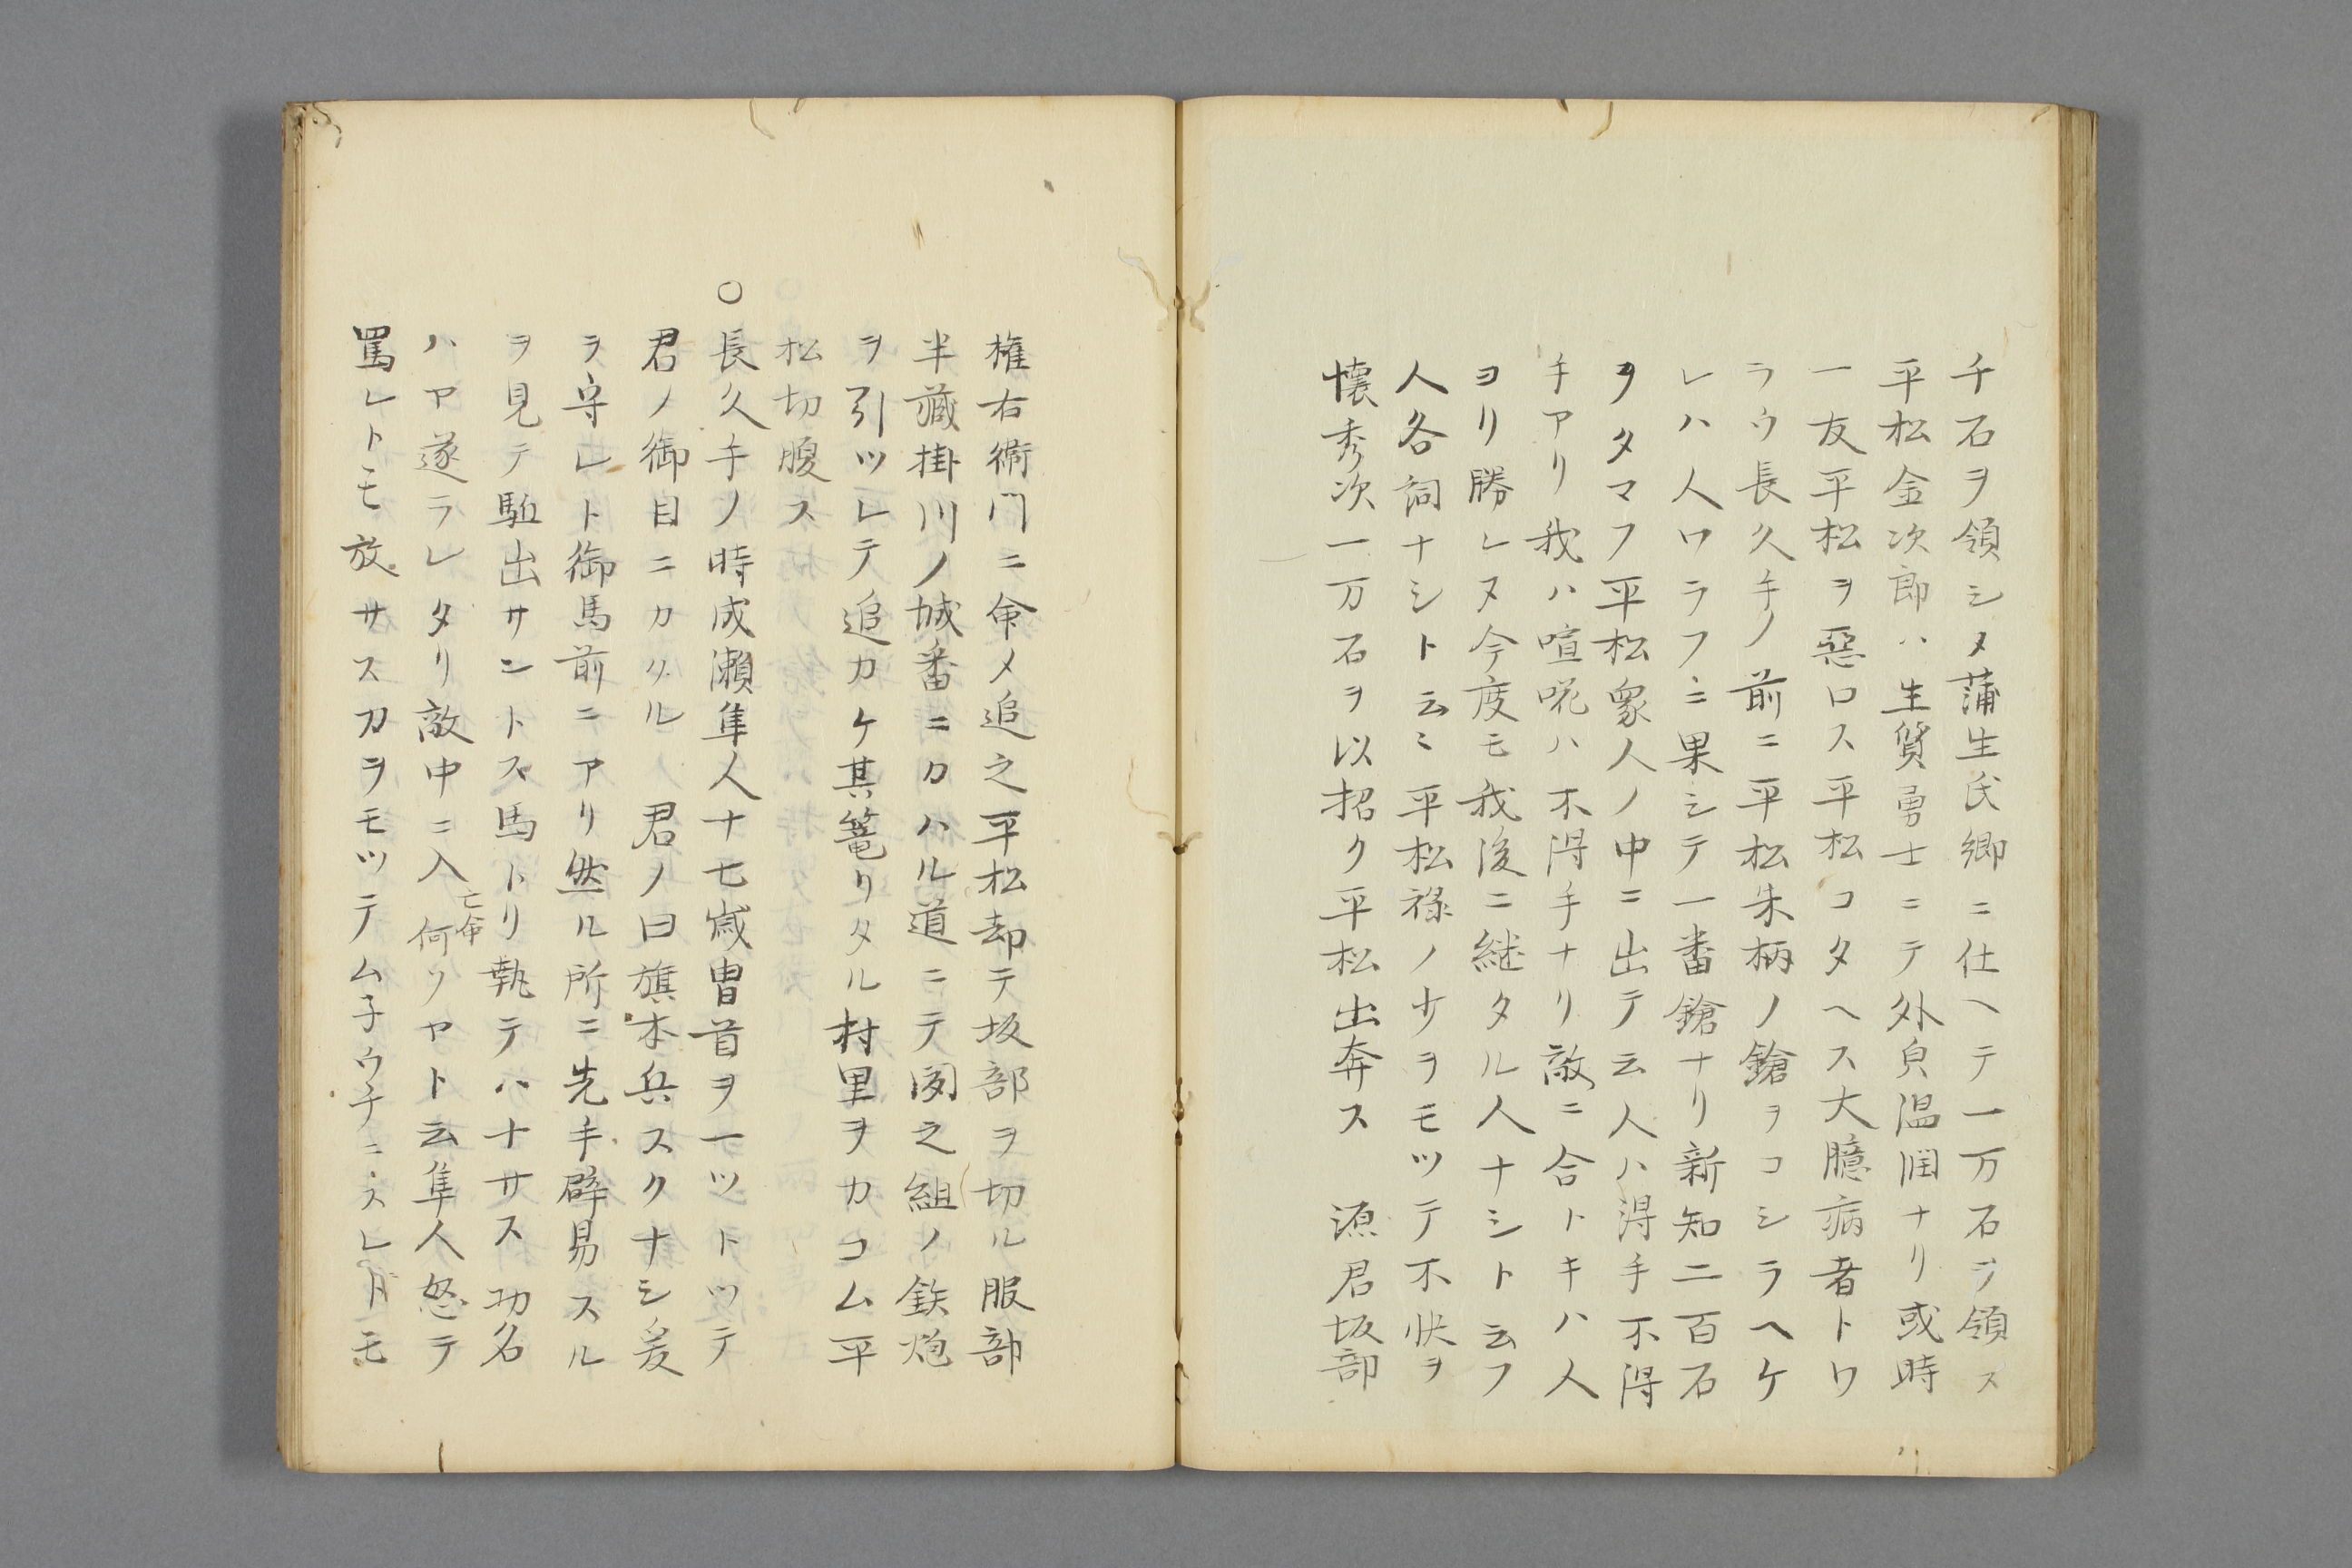 千石ヲ領シメ蒲生氏郷ニ仕ヘテ一万石ヲ領ス
平松金次郎ハ生質勇士ニテ外皃温潤ナリ或時
一友平松ヲ惡口ス平松コタヘス大臆病者トワ
ラウ長久手ノ前ニ平松朱柄ノ鎗ヲコシラヘケ
レハ人ワラフニ果シテ一番鎗ナリ新知二百石
ヲタマフ平松衆人ノ中ニ出テ云人ハ得手不得
手アリ我ハ喧𠵅ハ不得手ナリ敵ニ合トキハ人
ヨリ勝レヌ今度モ我後ニ継タル人ナシト云フ
人各詞ナシト云〻平松禄ノ少ヲモツテ不快ヲ
懐秀次一万石ヲ以招ク平松出奔ス 源君坂部
権右衛門ニ命メ追之平松却テ坂部ヲ切ル服部
半藏掛川ノ城番ニカハル道ニテ聞之組ノ鉄炮
ヲ引ツレテ追カケ其篭リタル村里ヲカコム平
松切腹ス
○長久手ノ時成瀬隼人十七歳冑首ヲ一ツトツテ
君ノ御目ニカクル 君ノ曰旗本兵スクナシ爰
ヲ守レト御馬前ニアリ然ル所ニ先手辟易スル
ヲ見テ駈出サントス馬トリ執テハナサス功名
ハヤ遂ラレタリ敵中ニ入亡命何ソヤト云隼人怒テ
罵レトモ放サス刀ヲモツテムチウチニスレ𪜈モ